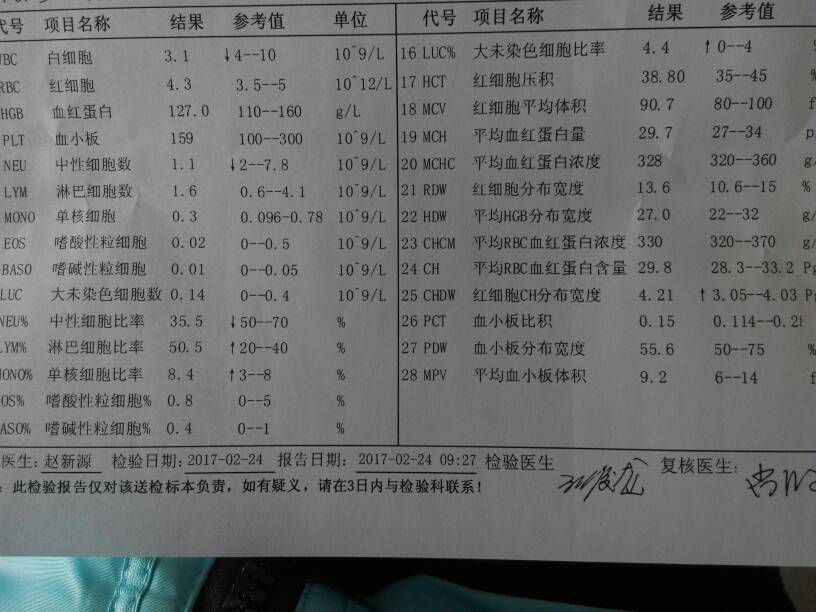 代号 项目名称 结果 参考值 单位 代号 项目名称 结果 参考值
WBC 白细胞 3.1 ↓4--10 10^9/L 16 LUC% 大未染色细胞比率 4.4 ↑0--4
RBC 红细胞 4.3 3.5--5 10^12/L 17 HCT 红细胞压积 38.80 35--45 %
HGB 血红蛋白 127.0 110--160 g/L 18 MCV 红细胞平均体积 90.7 80--100 f
PLT 血小板 159 100--300 10^9/L 19 MCH 平均血红蛋白量 29.7 27--34 p
NEU 中性细胞数 1.1 ↓2--7.8 10^9/L 20 MCHC 平均血红蛋白浓度 328 320--360 g/
LYM 淋巴细胞数 1.6 0.6--4.1 10^9/L 21 RDW 红细胞分布宽度 13.6 10.6--15 %
MONO 单核细胞 0.3 0.096-0.78 10^9/L 22 HDW 平均HGB分布宽度 27.0 22--32 g/
EOS 嗜酸性粒细胞 0.02 0--0.5 10^9/L 23 CHCM 平均RBC血红蛋白浓度 330 320--370 g/
BASO 嗜碱性粒细胞 0.01 0--0.05 10^9/L 24 CH 平均RBC血红蛋白含量 29.8 28.3--33.2 Pg
LUC 大未染色细胞数 0.14 0--0.4 10^9/L 25 CHDW 红细胞CH分布宽度 4.21 ↑3.05--4.03 Pg
NEU% 中性细胞比率 35.5 ↓50--70 % 26 PCT 血小板比积 0.15 0.114--0.28
LYM% 淋巴细胞比率 50.5 ↑20--40 % 27 PDW 血小板分布宽度 55.6 50--75 %
MONO% 单核细胞比率 8.4 ↑3--8 % 28 MPV 平均血小板体积 9.2 6--14 f
EOS% 嗜酸性粒细胞% 0.8 0--5 %
BASO% 嗜碱性粒细胞% 0.4 0--1 %
医生: 赵新源 检验日期: 2017-02-24 报告日期: 2017-02-24 09:27 检验医生 复核医生:
: 此检验报告仅对该送检标本负责，如有疑义，请在3日内与检验科联系!